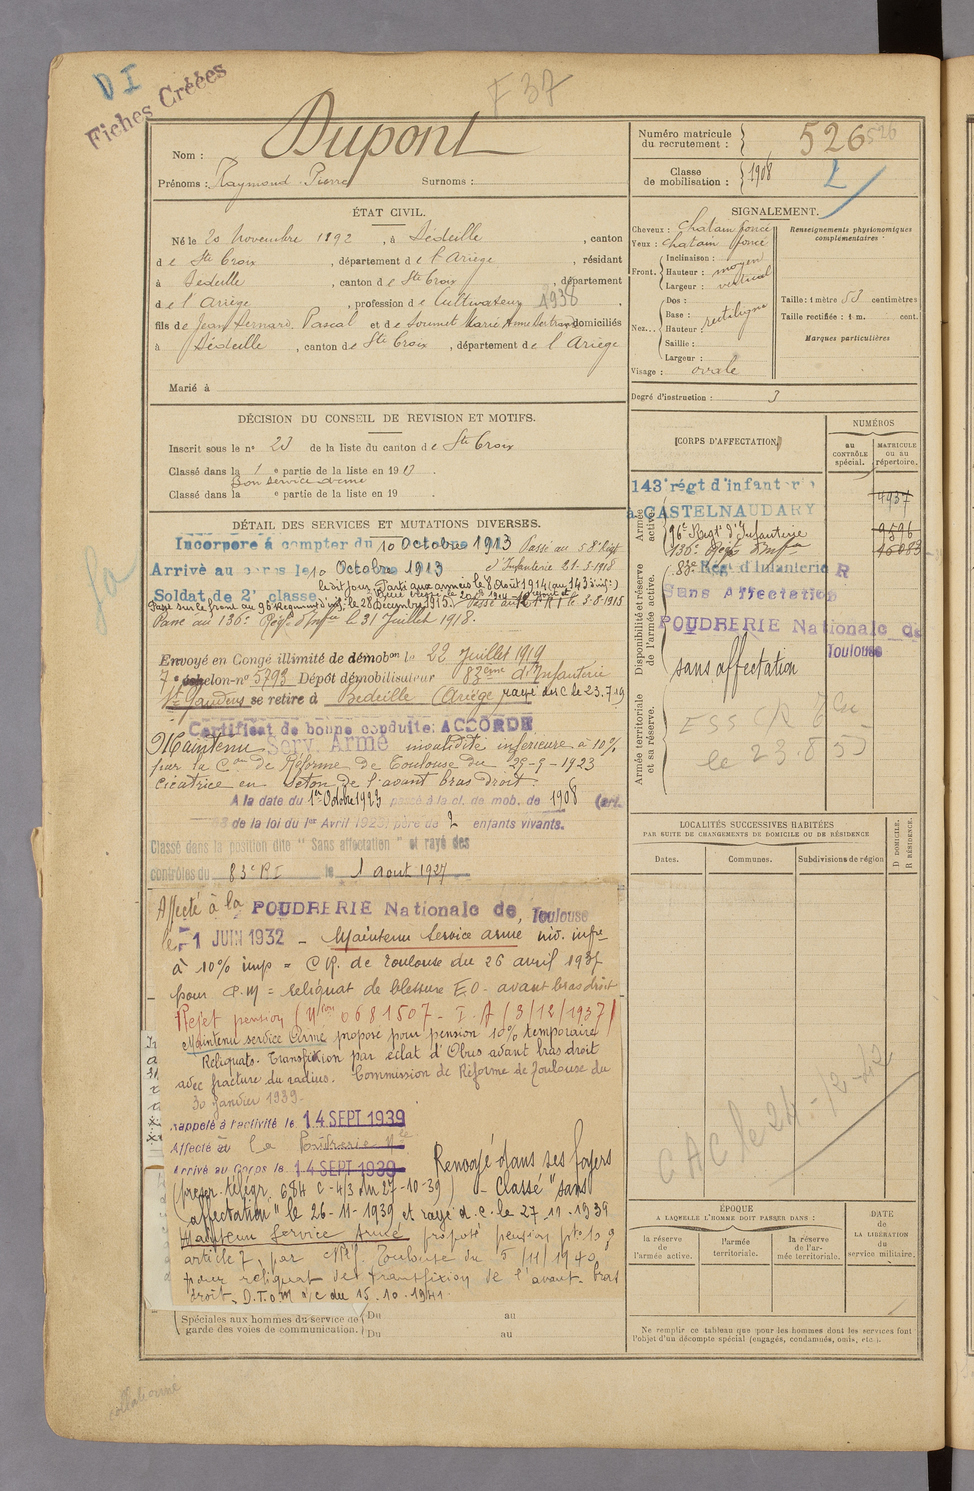 D I
Fiches Créées
F 37
Nom : Dupont
Prénoms : Raymond Pierre Surnoms :
Numéro matricule du recrutement : 526 526
Classe de mobilisation : 1908
ÉTAT CIVIL.
Né le 20 Novembre 1892, à Bédeille, canton
de Ste Croix, département de l'Ariège, résidant
à Bédeille, canton de Ste Croix, département
de l'Ariège, profession de Cultivateur 1938
fils de Jean Bernard Pascal et de Soumet Marie Anne Bertrande domiciliés
à Bédeille, canton de Ste Croix, département de l'Ariège
Marié à
SIGNALEMENT.
Cheveux : chatain foncé
Yeux : chatain foncé
Front. Inclinaison :
Hauteur : moyen
Largeur : vertical
Nez... Dos :
Base :
Hauteur : rectiligne
Saillie :
Largeur :
Visage : ovale
Renseignements physionomiques complémentaires :
Taille : 1 mètre 53 centimètres
Taille rectifiée : 1 m. cent.
Marques particulières
Degré d'instruction : 3
DÉCISION DU CONSEIL DE REVISION ET MOTIFS.
Inscrit sous le n° 20 de la liste du canton de Ste Croix
Classé dans la 1e partie de la liste en 19
Bon service armé
Classé dans la e partie de la liste en 19
DÉTAIL DES SERVICES ET MUTATIONS DIVERSES.
Incorporé à compter du 10 Octobre 1913 Passé au 58e Régt
d'Infanterie 21-5-1918
Arrivé au corps le 10 Octobre 1913
Soldat de 2e classe le dit jour. Parti aux armées le 8 Août 1914 (au 143 inf.)
Passé sur le front au 96 Régiment d'inf. le 28 Décembre 1915.
Passé au 136e Régt d'Infie le 31 Juillet 1918.
Envoyé en Congé illimité de démobon le 22 Juillet 1919
7e échelon-n° 5793 Dépôt démobilisateur 83ème d'Infanterie
St Gaudens se retire à Bédeille (Ariège) rayé des C le 23.7.19
Certificat de bonne conduite ACCORDÉ
Maintenu Serv. Armé invalidité inférieure à 10%
par la Con de Réforme de Toulouse du 29-9-1923
cicatrice en séton de l'avant bras droit.
A la date du 1er Octobre 1923 passé à la cl. de mob. de 1908 (art.
de la loi du 1er Avril 1923) père de 2 enfants vivants.
Classé dans la position dite "Sans affectation" et rayé des
contrôles du 83e RI le 1 aout 1927
Affecté à la POUDRERIE Nationale de Toulouse
le 1 JUIN 1932 - Maintenu Service armé inv. infre
à 10% imp = CR. de Toulouse du 26 avril 1937
pour P.M = reliquat de blessure E.O - avant bras droit
Rejet pension (Mton 0681507 - I.A (3/12/1937)
Maintenu service Armé proposé pour pension 10% temporaire
Reliquats. Transfixion par éclat d'Obus avant bras droit
avec fracture du radius. Commission de Réforme de Toulouse du
30 janvier 1939.
rappelé à l'activité le 14 SEPT 1939
Affecté à la Poudrerie Nle
Arrivé au Corps le 14 SEPT 1939 Renvoyé dans ses foyers
(prescr. télégr. 684 C-4/3 du 27-10-39) - Classé "sans
affectation" le 26-11-1939 et rayé d.c. le 27.11.1939
Maintenu Service Armé proposé pension pte 10%
article 7, par CR Toulouse du 5/11/1940,
pour reliquat de transfixion de l'avant-bras
droit. D.T.O.M. n/c du 15.10.1941.
Spéciales aux hommes du service de garde des voies de communication. Du au
Du au
CORPS D'AFFECTATION.
NUMÉROS
au CONTRÔLE spécial.
MATRICULE ou au répertoire.
Armée active.
143e régt d'infanterie
à CASTELNAUDARY 4937
96e Regt d'Infanterie 9596
136e Régt d'Infie
Disponibilité et réserve de l'armée active.
83e Régt d'Infanterie R
Sans Affectation
POUDRERIE Nationale de
Toulouse
sans affectation
Armée territoriale et sa réserve.
LOCALITÉS SUCCESSIVES HABITÉES
PAR SUITE DE CHANGEMENTS DE DOMICILE OU DE RÉSIDENCE
Dates. Communes. Subdivisions de région
D DOMICILE. R RÉSIDENCE.
CAC le 24-12-42
ÉPOQUE
A LAQUELLE L'HOMME DOIT PASSER DANS :
la réserve de l'armée active.
l'armée territoriale.
la réserve de l'armée territoriale.
DATE de LA LIBÉRATION du service militaire.
Ne remplir ce tableau que pour les hommes dont les services font
l'objet d'un décompte spécial (engagés, condamnés, omis, etc.).
collationné